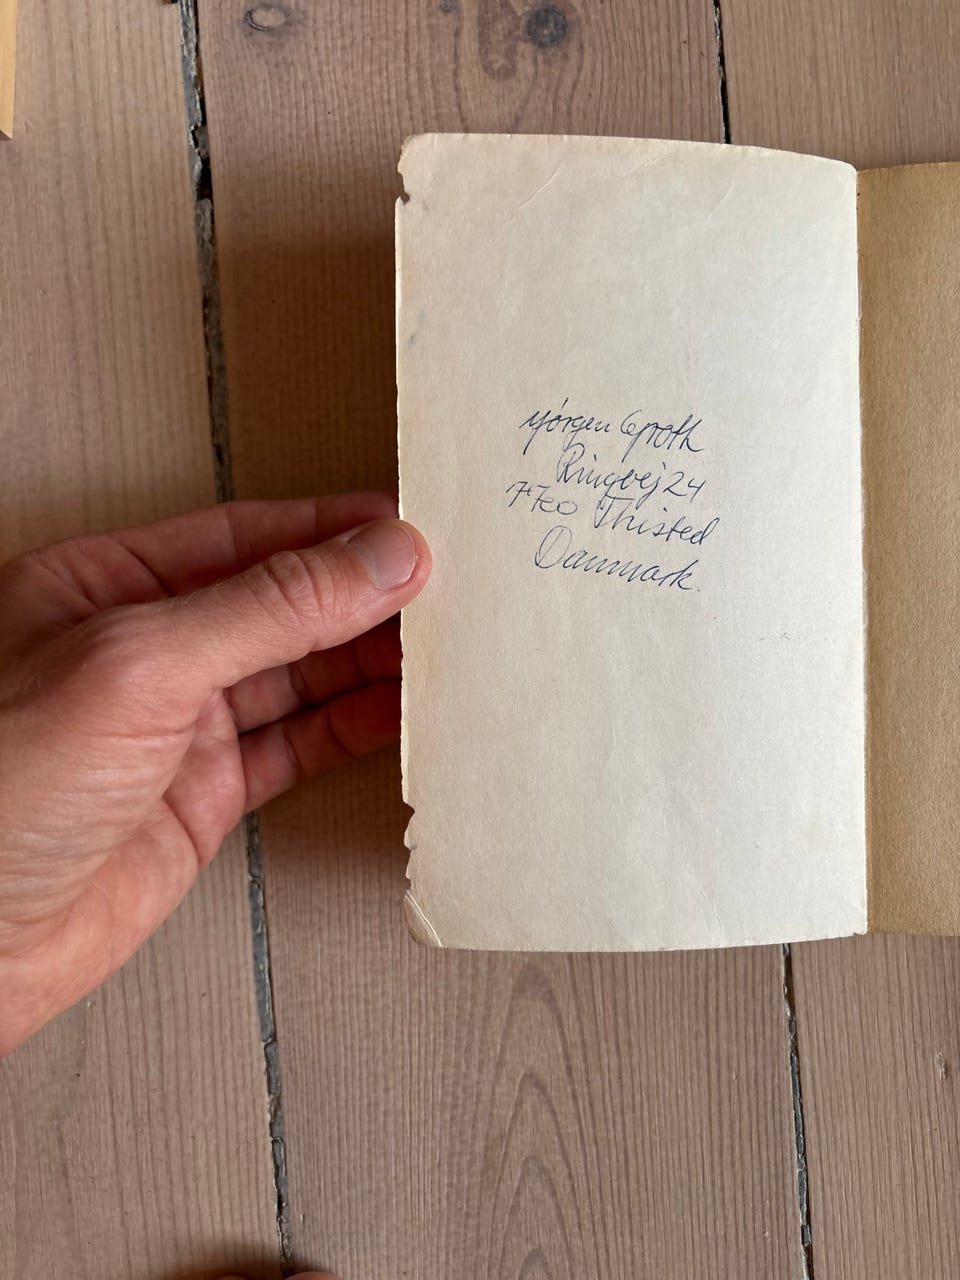 Jörgen Groth
Ringvej 24
7700 Thisted
Danmark.